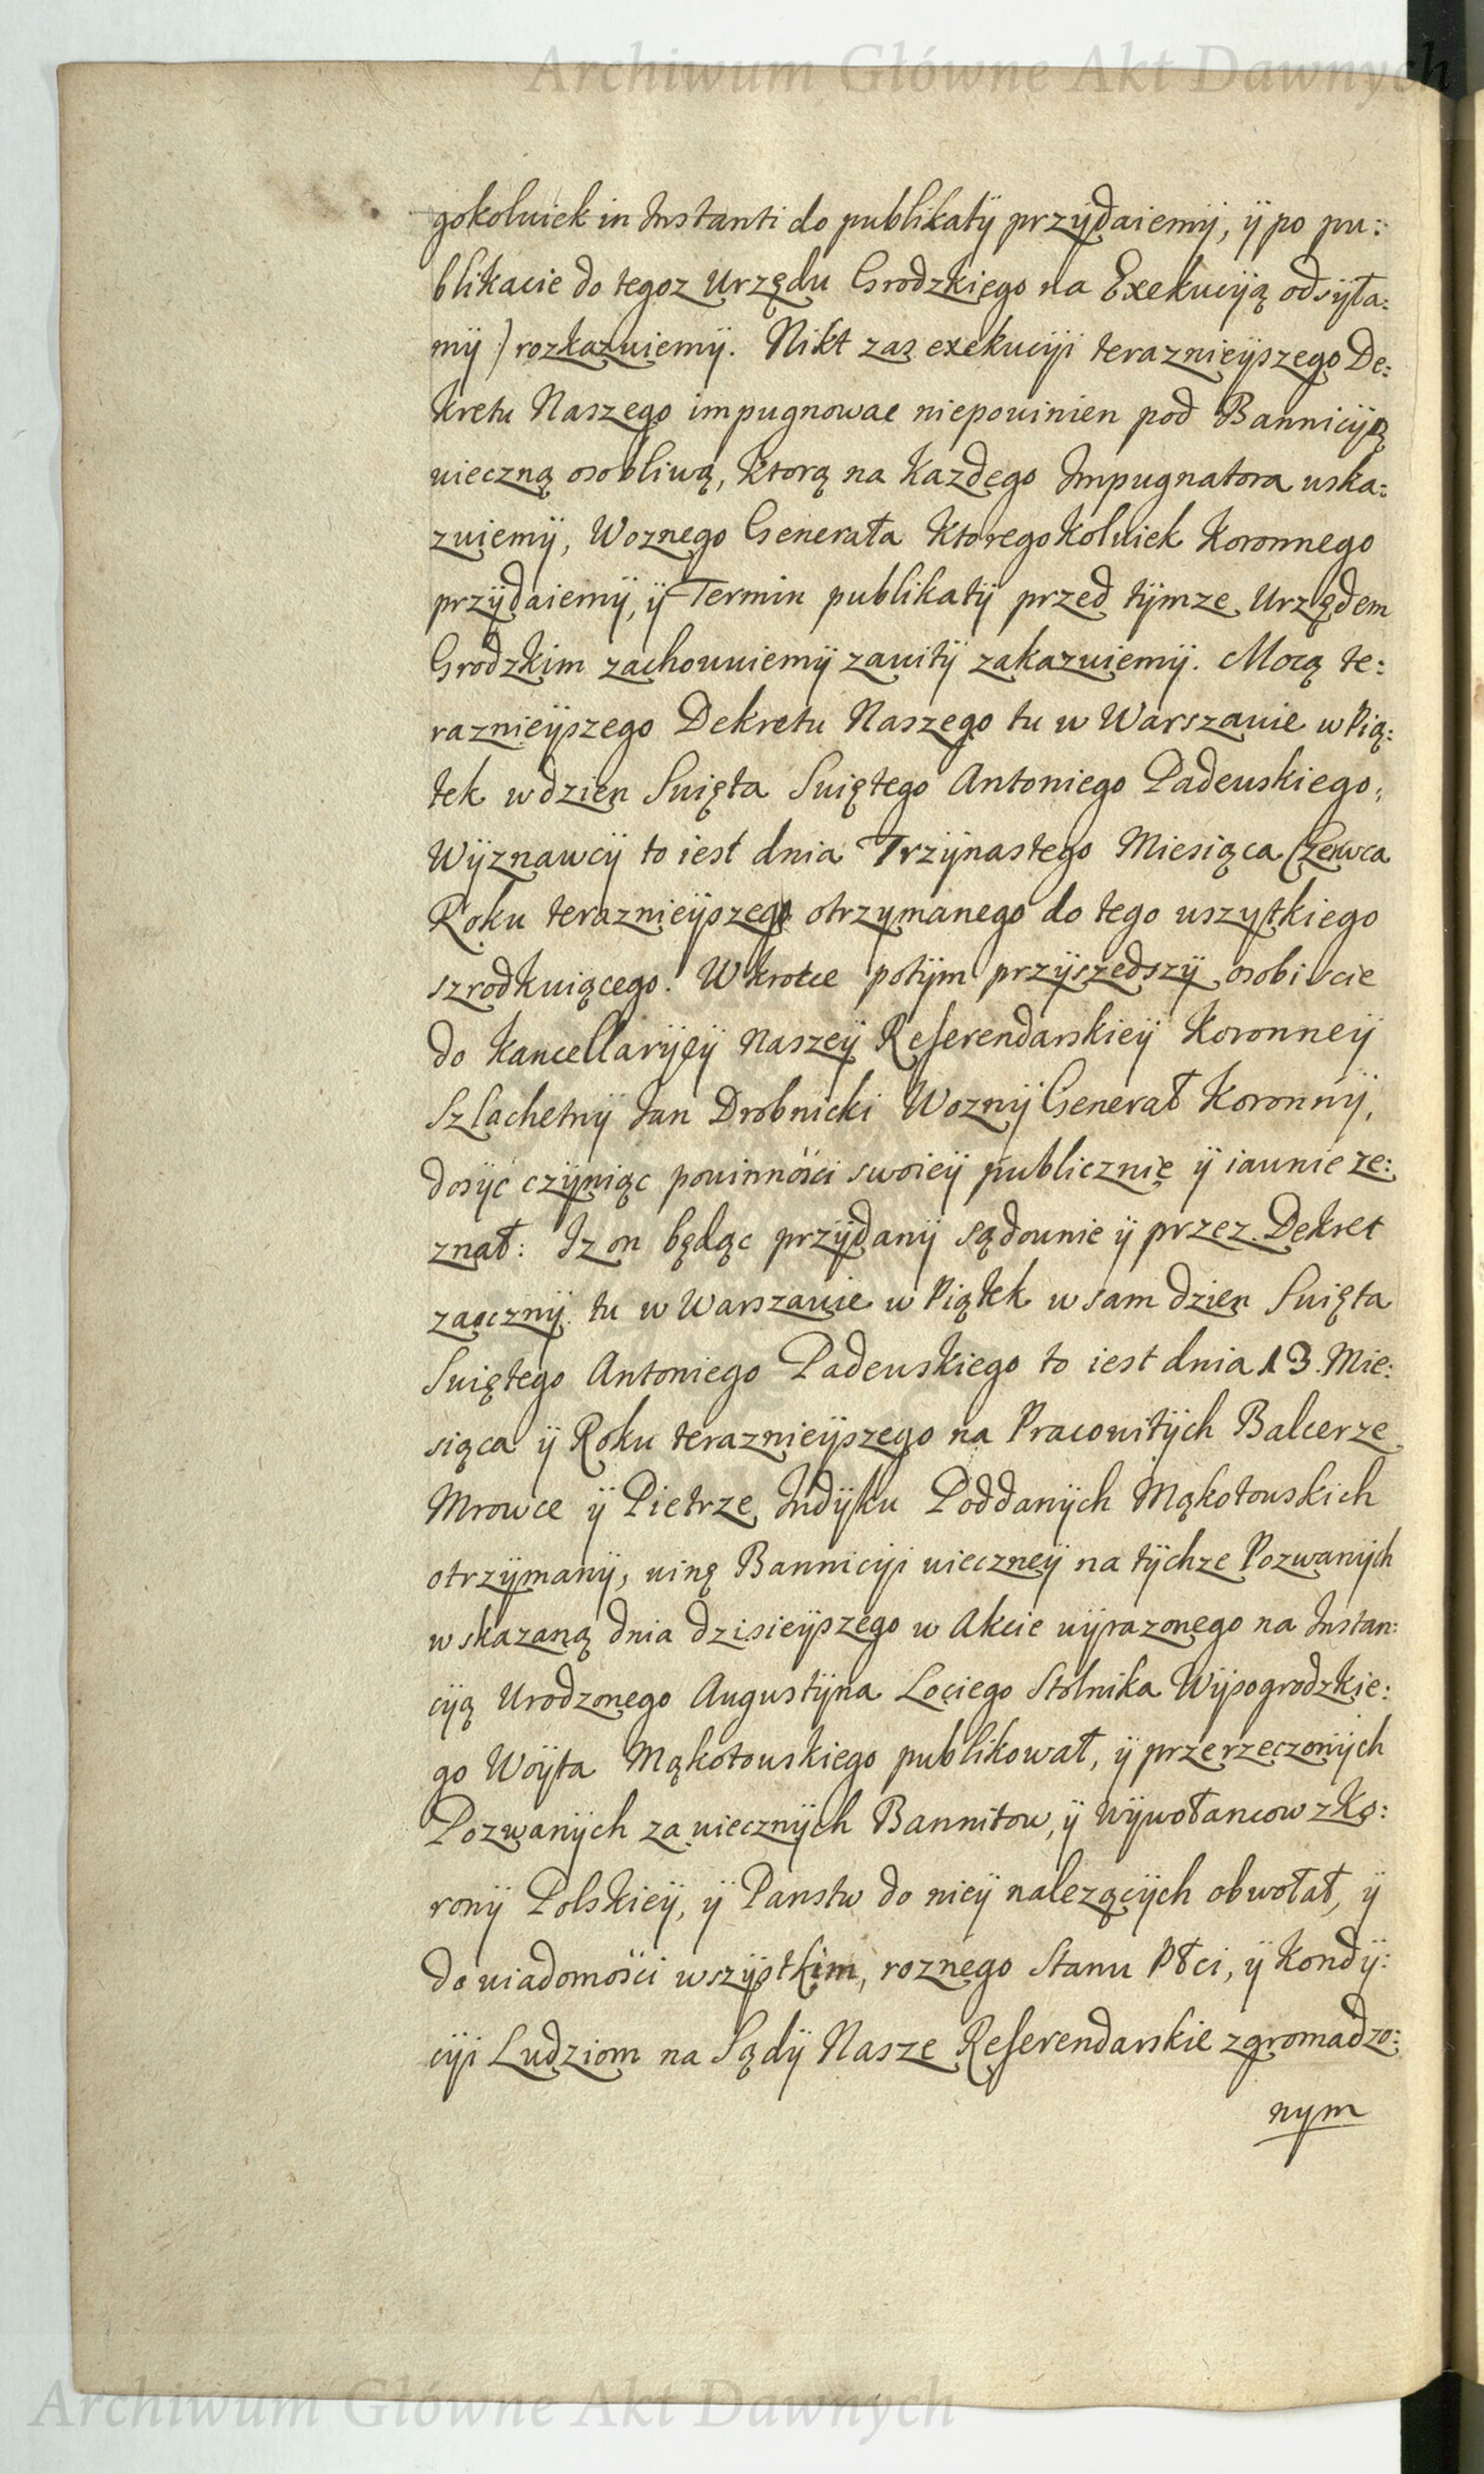 Archiwum Główne Akt Dawnych
gokolwiek in Instanti do publikatÿ przÿdaiemÿ, ÿ po pu:
blikacie do tegoz Urzędu Grodzkiego na Exekucÿą odsÿła:
mÿ :/ rozkazuiemÿ. Nikt zas exekucÿi teraznieÿszego De:
kretu Naszego impugnowac niepowinien pod Bannicÿą
wieczną osobliwą, ktorą na kazdego Impugnatora wska:
zuiemÿ, Woznego Generała ktoregokolwiek Koronnego
przÿdaiemÿ, ÿ Termin publikatÿ przed tÿmze Urzędem
Grodzkim zachowuiemÿ zawitÿ zakazuiemÿ. Mocą te:
raznieÿszego Dekretu Naszego tu w Warszawie w Pią:
tek w dzien Swięta Swiętego Antoniego Padewskiego,
Wÿznawcÿ to iest dnia Trzÿnastego Miesiąca Czerwca
Roku teraznieÿszego otrzymanego do tego wszytkiego
szrodkuiącego. Wkrotce potÿm przÿszedszÿ osobiscie
do Kancellarÿeÿ Naszeÿ Referendarskieÿ Koronneÿ
Szlachetnÿ Jan Drobnicki Woznÿ Generał Koronnÿ,
dosÿć czÿniąc powinności swoieÿ publicznie ÿ iawnie ze:
znał: Iz on będąc przÿdanÿ sądownie ÿ przez Dekret
zaocznÿ tu w Warszawie w Piątek w sam dzien Swięta
Swiętego Antoniego Padewskiego to iest dnia 13. Mie:
siąca ÿ Roku teraznieÿszego na Pracowitÿch Balcerze
Mrowce ÿ Pietrze Indÿku Poddanÿch Mąkotowskich
otrzÿmanÿ, winę Bannicÿi wieczneÿ na tÿchze Pozwanÿch
wskazaną dnia dzisieÿszego w Akcie wÿrazonego na Instan:
cÿą Urodzonego Augustÿna Lociego Stolnika Wÿsogrodzkie:
go Woÿta Mąkotowskiego publikował, ÿ przerzeczonÿch
Pozwanÿch za wiecznÿch Bannitow, ÿ Wÿwołancow z Ko:
ronÿ Polskieÿ, ÿ Panstw do nieÿ nalezącÿch obwołał, ÿ
do wiadomości wszÿstkim, roznego Stanu Płci, ÿ Kondÿ:
cÿi Ludziom na Sądÿ Nasze Referendarskie zgromadzo:
nym
Archiwum Główne Akt Dawnych